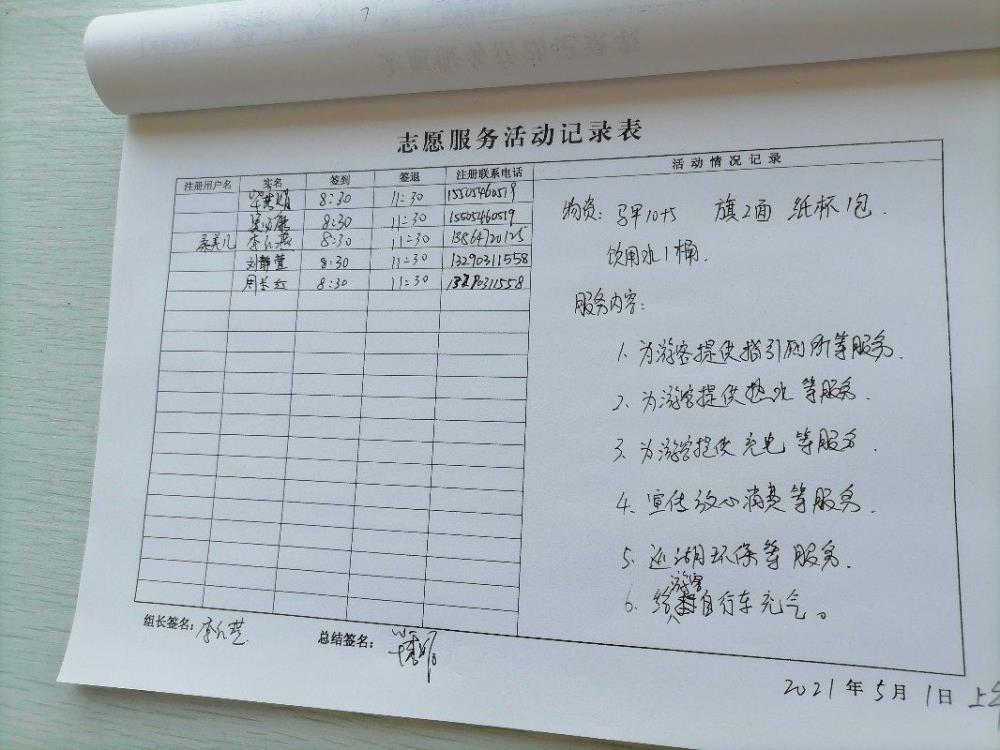 志愿服务活动记录表
注册用户名 实名 签到 签退 注册联系电话
8:30 11:30 15505460519
8:30 11:30 15505460519
8:30 11:30 13864720125
刘静萱 8:30 11:30 13290311558
周长红 8:30 11:30
活动情况记录
物资: 马甲10件 旗2面 纸杯1包.
饮用水1桶.
服务内容:
1. 为游客提供指引厕所等服务.
2. 为游客提供热水等服务.
3. 为游客提供充电等服务.
4. 宣传放心消费等服务.
5. 巡湖环保等服务.
6. 给游客自行车充气。
组长签名:
总结签名:
2021年5月1日 上午